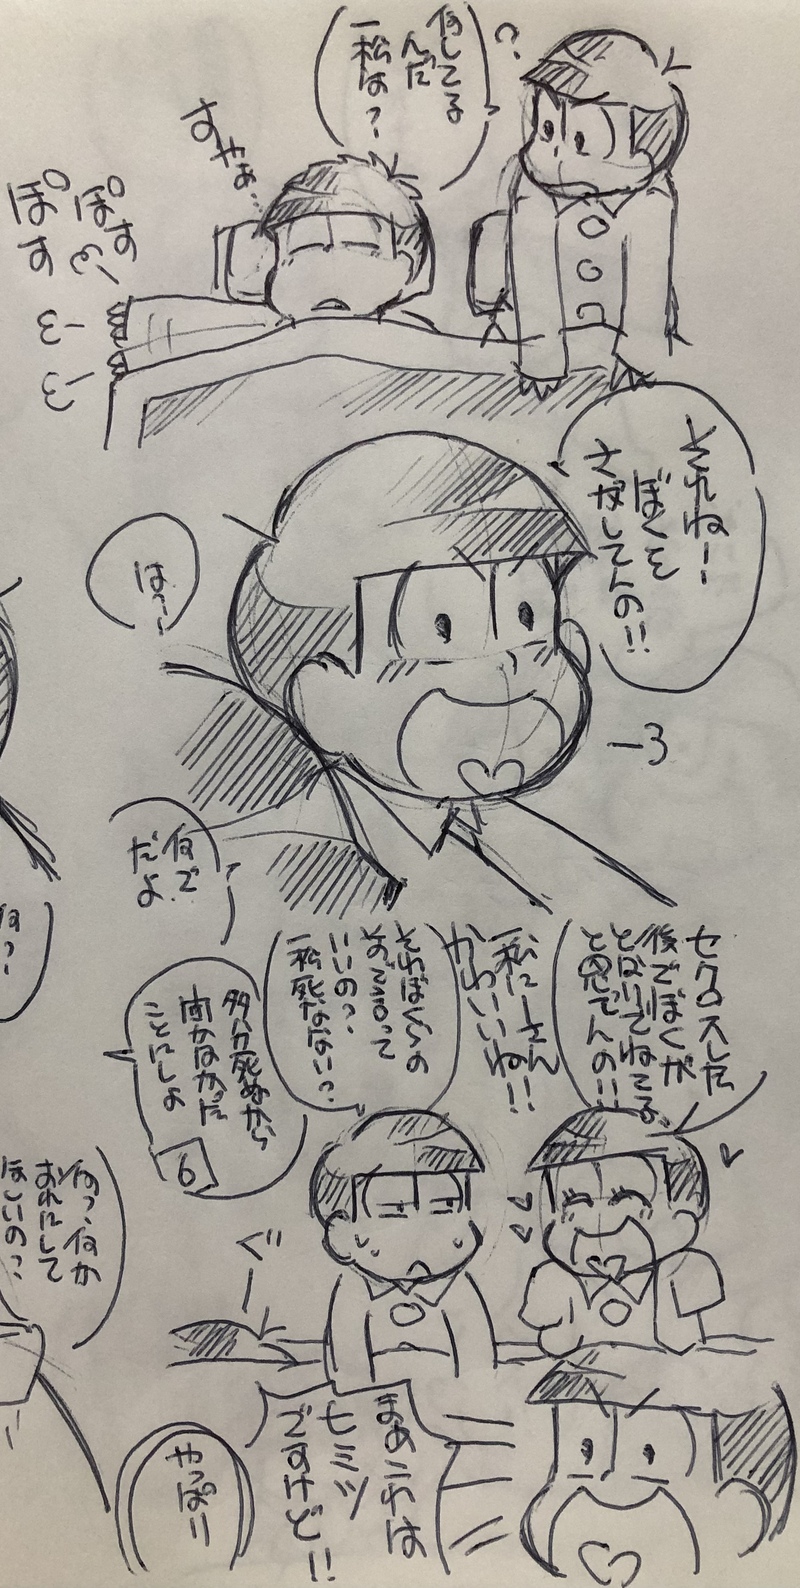 何してる
んだ
一松は?
?
すやぁ…
ぽす
ぽす
それねー
ぼくを
さがしてんの!!
は…
何で
だよ
何?
セクロスした
後でぼくが
となりでねてる
と思てんの!!
一松にーさん
かわいいね!!
それぼくらの
まえで言って
いいの?
一松死なない?
多分死ぬから
聞かなかった
ことにしよ
6
ぐー
何?、何か
おれにして
ほしいの?
まあこれは
ヒミツ
ですけど!!
やっぱり